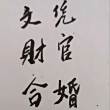 凭官婚
文財合